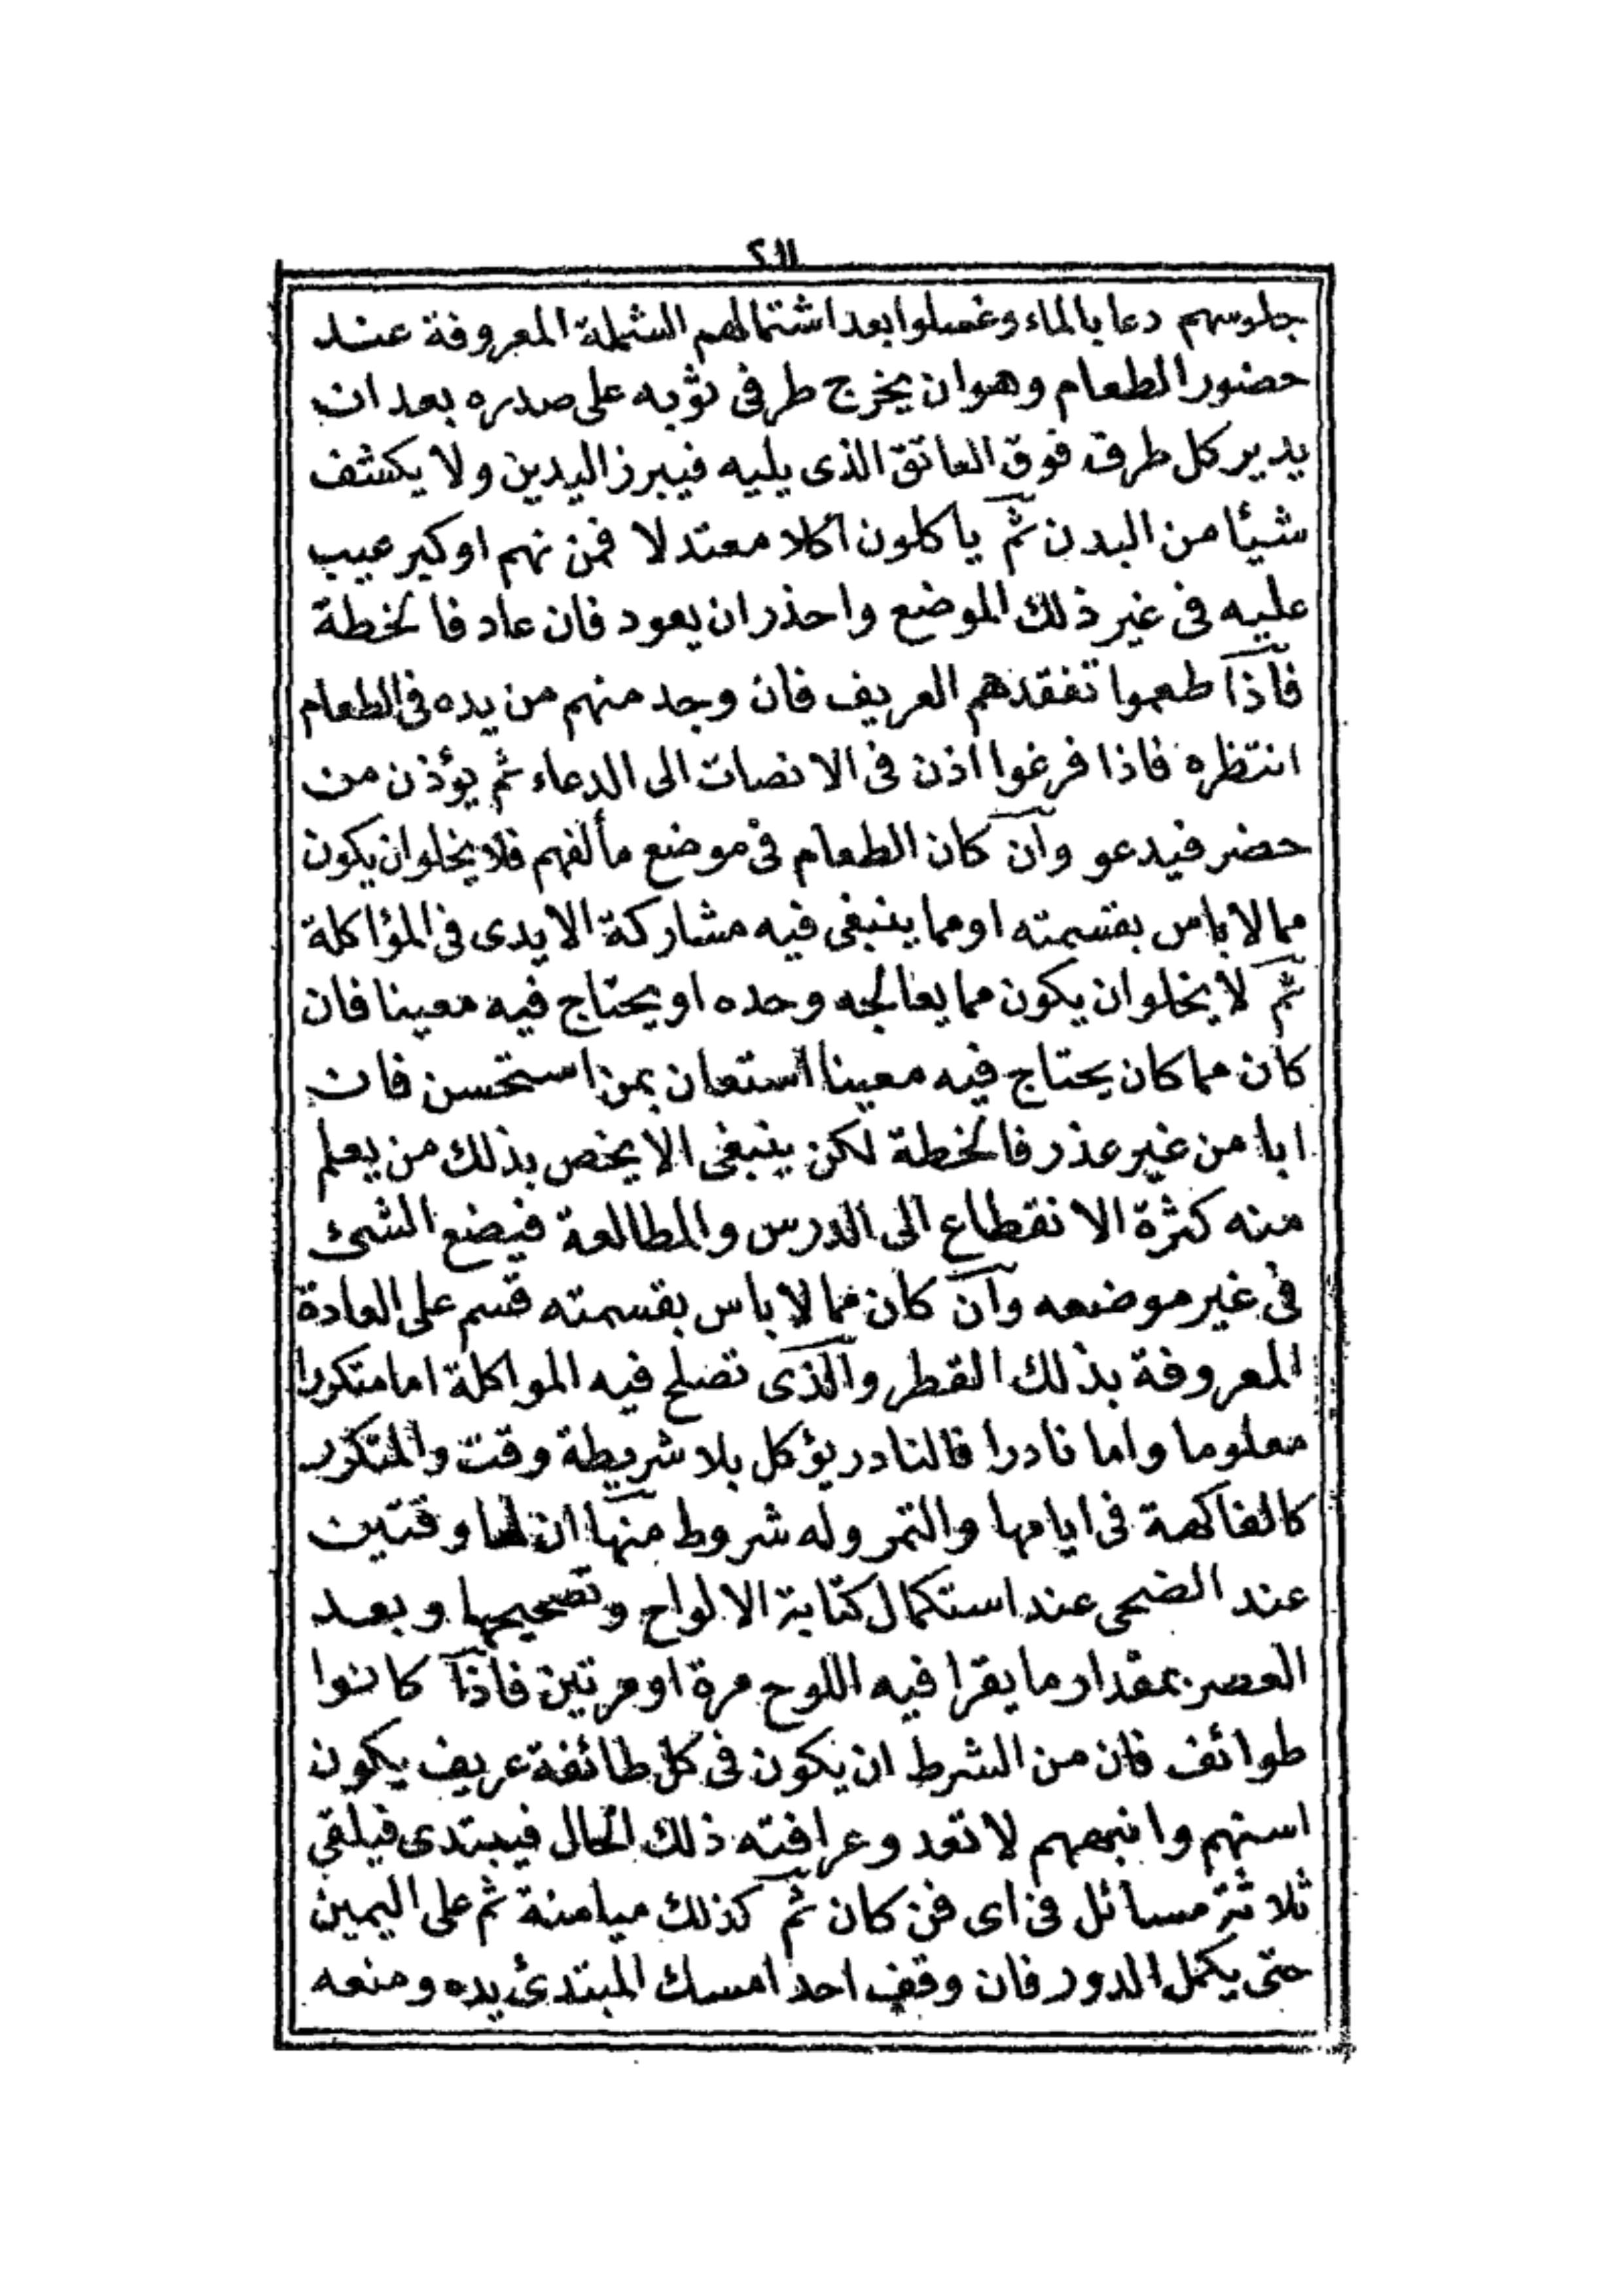 ٢١١
جلوسهم دعا بالماء وغسلوا بعد اشتمالهم الشملة المعروفة عند
حضور الطعام وهو ان يخرج طرفى ثوبه على صدره بعد ان
يدير كل طرف فوق العاتق الذى يليه فيبرز اليدين ولا يكشف
شيئا من البدن ثم ياكلون اكلا معتدلا فمن نهم او كبر عيب
عليه فى غير ذلك الموضع واحذر ان يعود فان عاد فالخطة
فاذا طعموا تفقدهم العريف فان وجد منهم من يده فى الطعام
انتظره فاذا فرغوا اذن فى الانصات الى الدعاء ثم يؤذن من
حضر فيدعو وان كان الطعام فى موضع مألفهم فلا يخلو ان يكون
مما لا باس بقسمته او مما ينبغى فيه مشاركة الايدى فى المؤاكلة
ثم لا يخلو ان يكون مما يعالجه وحده او يحتاج فيه معينا فان
كان مما كان يحتاج فيه معينا استعان بمن استحسن فان
ابا من غير عذر فالخطة لكن ينبغى الا يخص بذلك من يعلم
منه كثرة الانقطاع الى الدرس والمطالعة فيضع الشئ
فى غير موضعه وان كان مما لا باس بقسمته قسم على العادة
المعروفة بذلك القطر والذى تصلح فيه المواكلة اما متكررا
معلوما واما نادرا فالنادر يؤكل بلا شريطة وقت والمتكرر
كالفاكهة فى ايامها والتمر وله شروط منها ان لها وقتين
عند الضحى عند استكمال كتابة الالواح وتصحيحها وبعد
العصر بمقدار ما يقرا فيه اللوح مرة او مرتين فاذا كانوا
طوائف فان من الشرط ان يكون فى كل طائفة عريف يكون
اسنهم وانبههم لا تعد وعرافته ذلك الحال فيبتدى فيلقى
ثلاثة مسائل فى اى فن كان ثم كذلك ميامنة ثم على اليمين
حتى يكمل الدور فان وقف احد امسك المبتدئ يده ومنعه